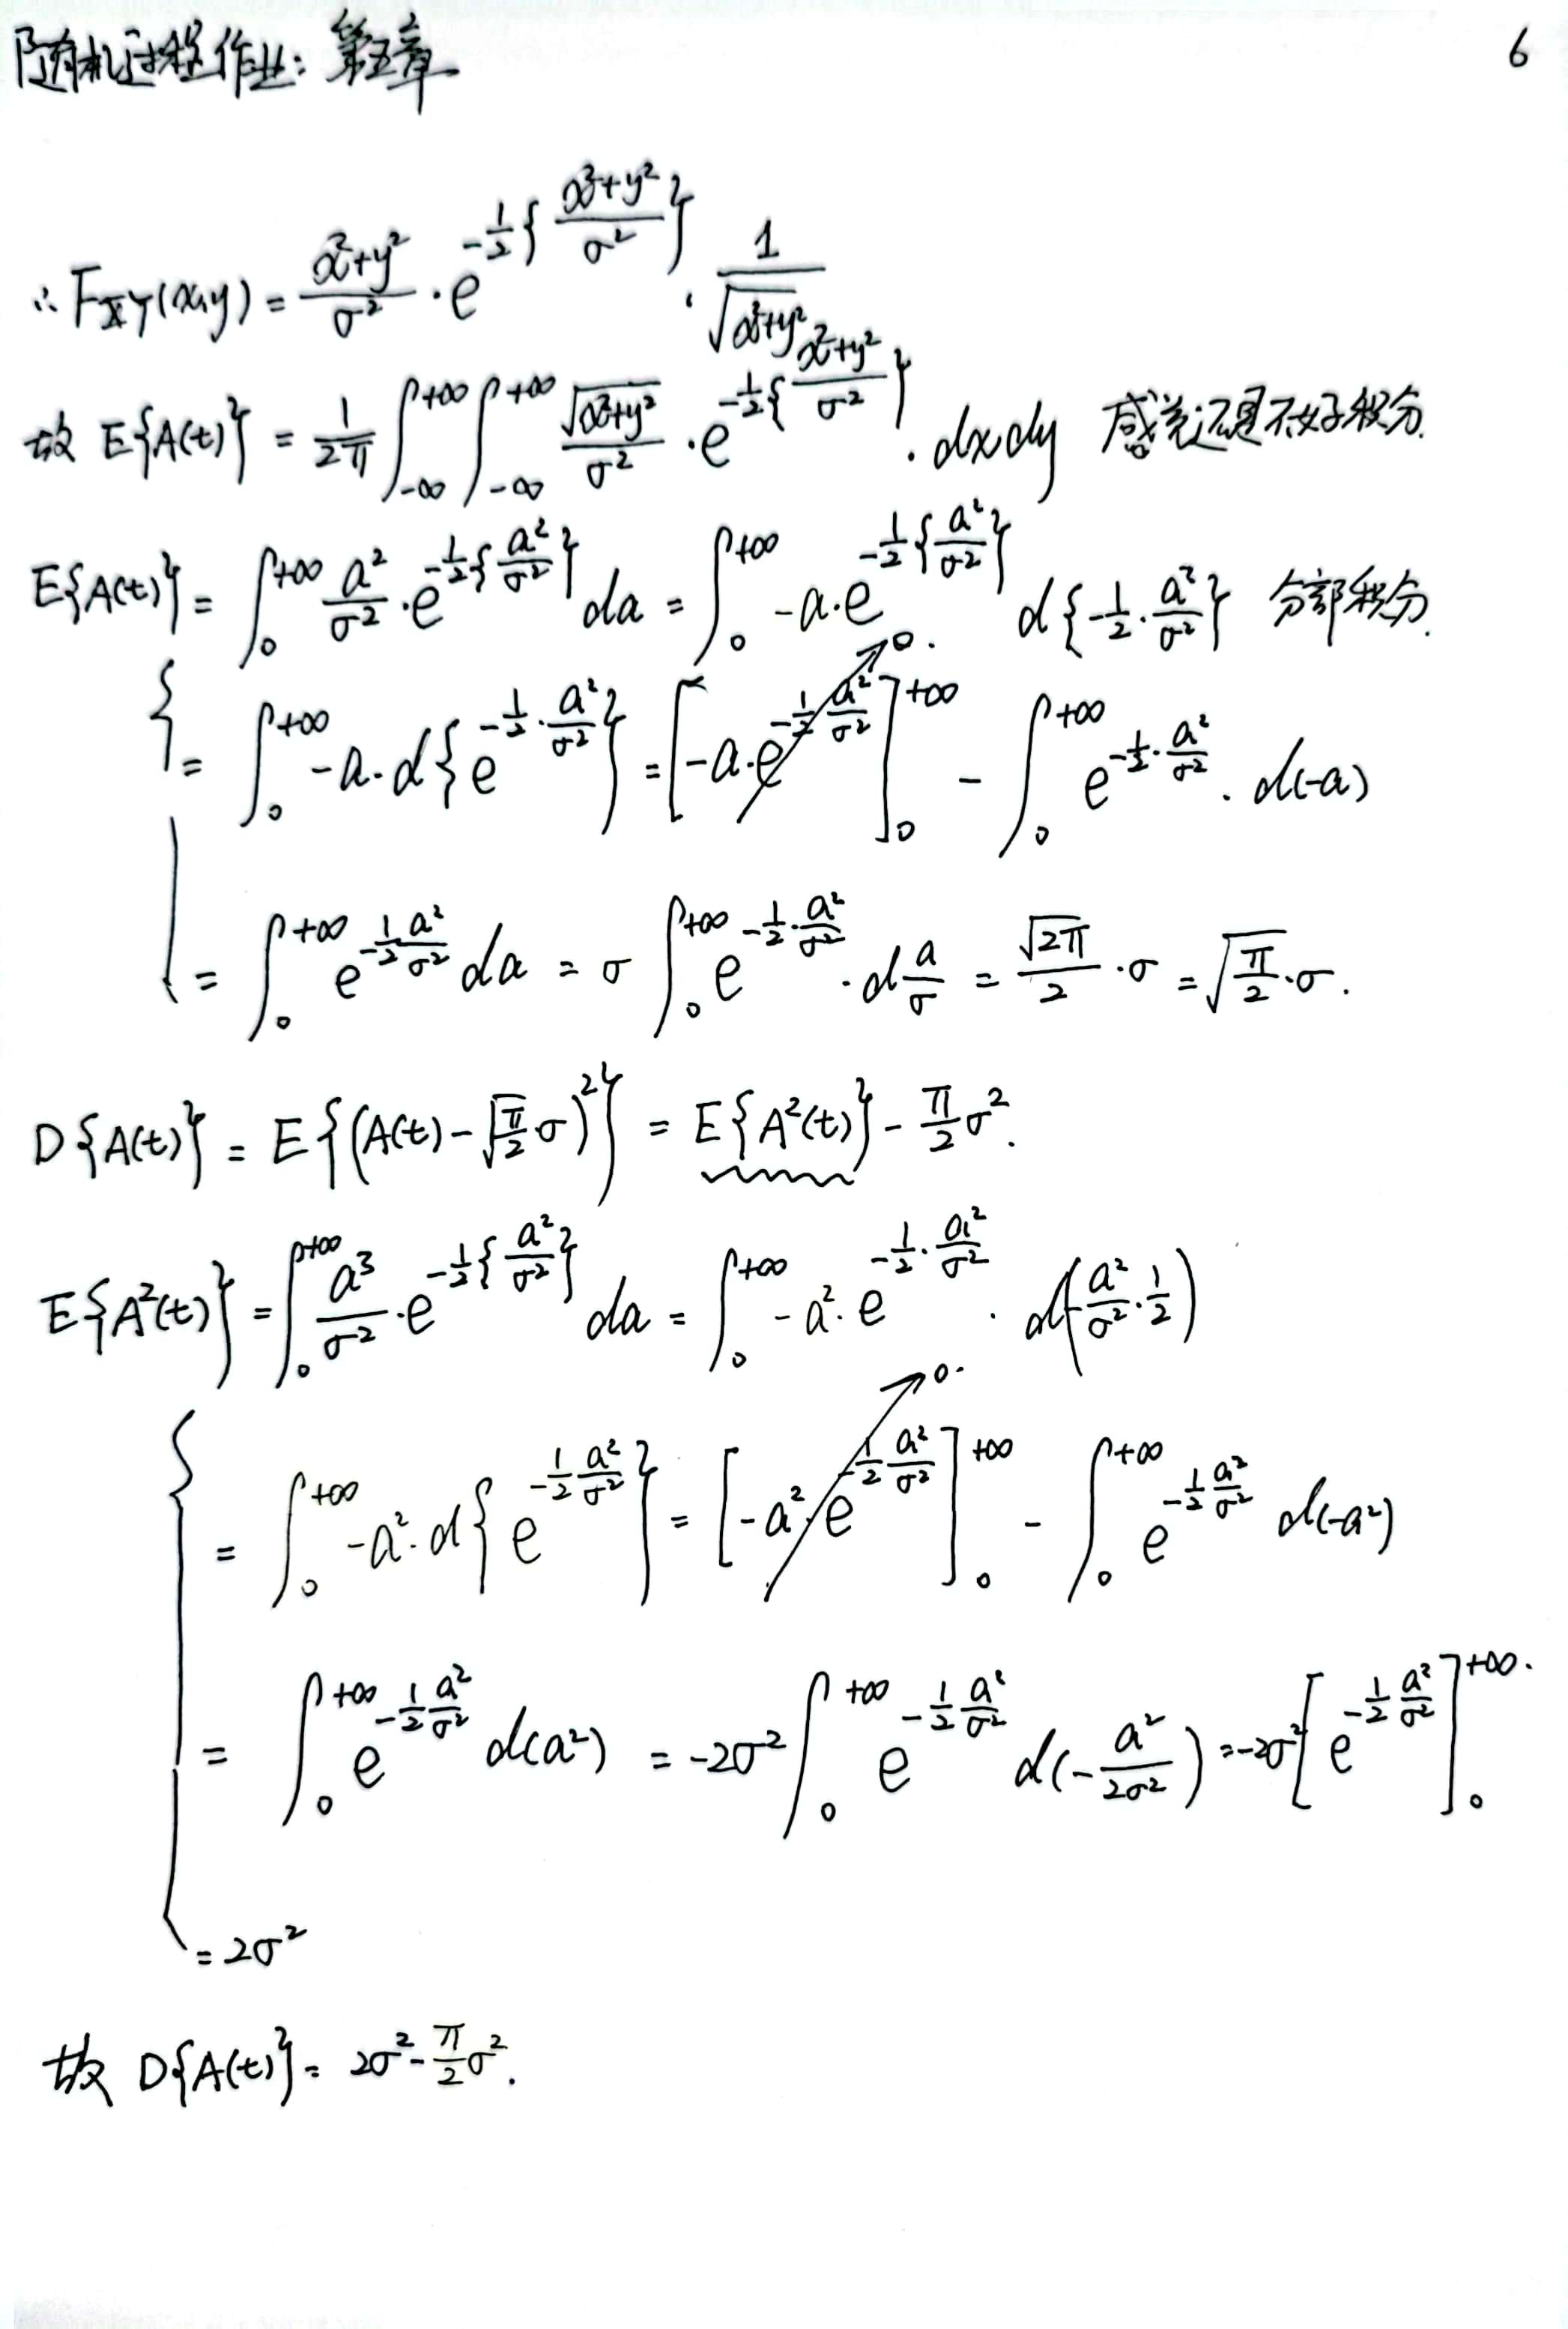 随机过程作业：第五章 6
∴ F_{XY}(x,y) = \frac{x^2+y^2}{σ^2} · e^{-\frac{1}{2}\{\frac{x^2+y^2}{σ^2}\}} · \frac{1}{\sqrt{x^2+y^2}}
故 E{A(t)} = \frac{1}{2π} \int_{-∞}^{+∞} \int_{-∞}^{+∞} \frac{\sqrt{x^2+y^2}}{σ^2} · e^{-\frac{1}{2}\{\frac{x^2+y^2}{σ^2}\}} · dxdy 感觉还是不好积分.
E{A(t)} = \int_0^{+∞} \frac{a^2}{σ^2} · e^{-\frac{1}{2}\{\frac{a^2}{σ^2}\}} da = \int_0^{+∞} -a · e^{-\frac{1}{2}\{\frac{a^2}{σ^2}\}} d\{-\frac{1}{2}·\frac{a^2}{σ^2}\} 分部积分.
= \int_0^{+∞} -a · d\{e^{-\frac{1}{2}·\frac{a^2}{σ^2}}\} = [-a · e^{-\frac{1}{2}\frac{a^2}{σ^2}}]_0^{+∞} → 0. - \int_0^{+∞} e^{-\frac{1}{2}·\frac{a^2}{σ^2}} · d(-a)
= \int_0^{+∞} e^{-\frac{1}{2}\frac{a^2}{σ^2}} da = σ \int_0^{+∞} e^{-\frac{1}{2}·\frac{a^2}{σ^2}} · d\frac{a}{σ} = \frac{\sqrt{2π}}{2} · σ = \sqrt{\frac{π}{2}} · σ.
D{A(t)} = E\{(A(t) - \sqrt{\frac{π}{2}}σ)^2\} = E{A^2(t)} - \frac{π}{2}σ^2.
E{A^2(t)} = \int_0^{+∞} \frac{a^3}{σ^2} · e^{-\frac{1}{2}\{\frac{a^2}{σ^2}\}} da = \int_0^{+∞} -a^2 · e^{-\frac{1}{2}·\frac{a^2}{σ^2}} · d(-\frac{a^2}{σ^2}·\frac{1}{2})
= \int_0^{+∞} -a^2 · d\{e^{-\frac{1}{2}\frac{a^2}{σ^2}}\} = [-a^2 · e^{-\frac{1}{2}\frac{a^2}{σ^2}}]_0^{+∞} → 0. - \int_0^{+∞} e^{-\frac{1}{2}\frac{a^2}{σ^2}} d(-a^2)
= \int_0^{+∞} e^{-\frac{1}{2}\frac{a^2}{σ^2}} d(a^2) = -2σ^2 \int_0^{+∞} e^{-\frac{1}{2}\frac{a^2}{σ^2}} d(-\frac{a^2}{2σ^2}) = -2σ^2 [e^{-\frac{1}{2}\frac{a^2}{σ^2}}]_0^{+∞}.
= 2σ^2
故 D{A(t)} = 2σ^2 - \frac{π}{2}σ^2.